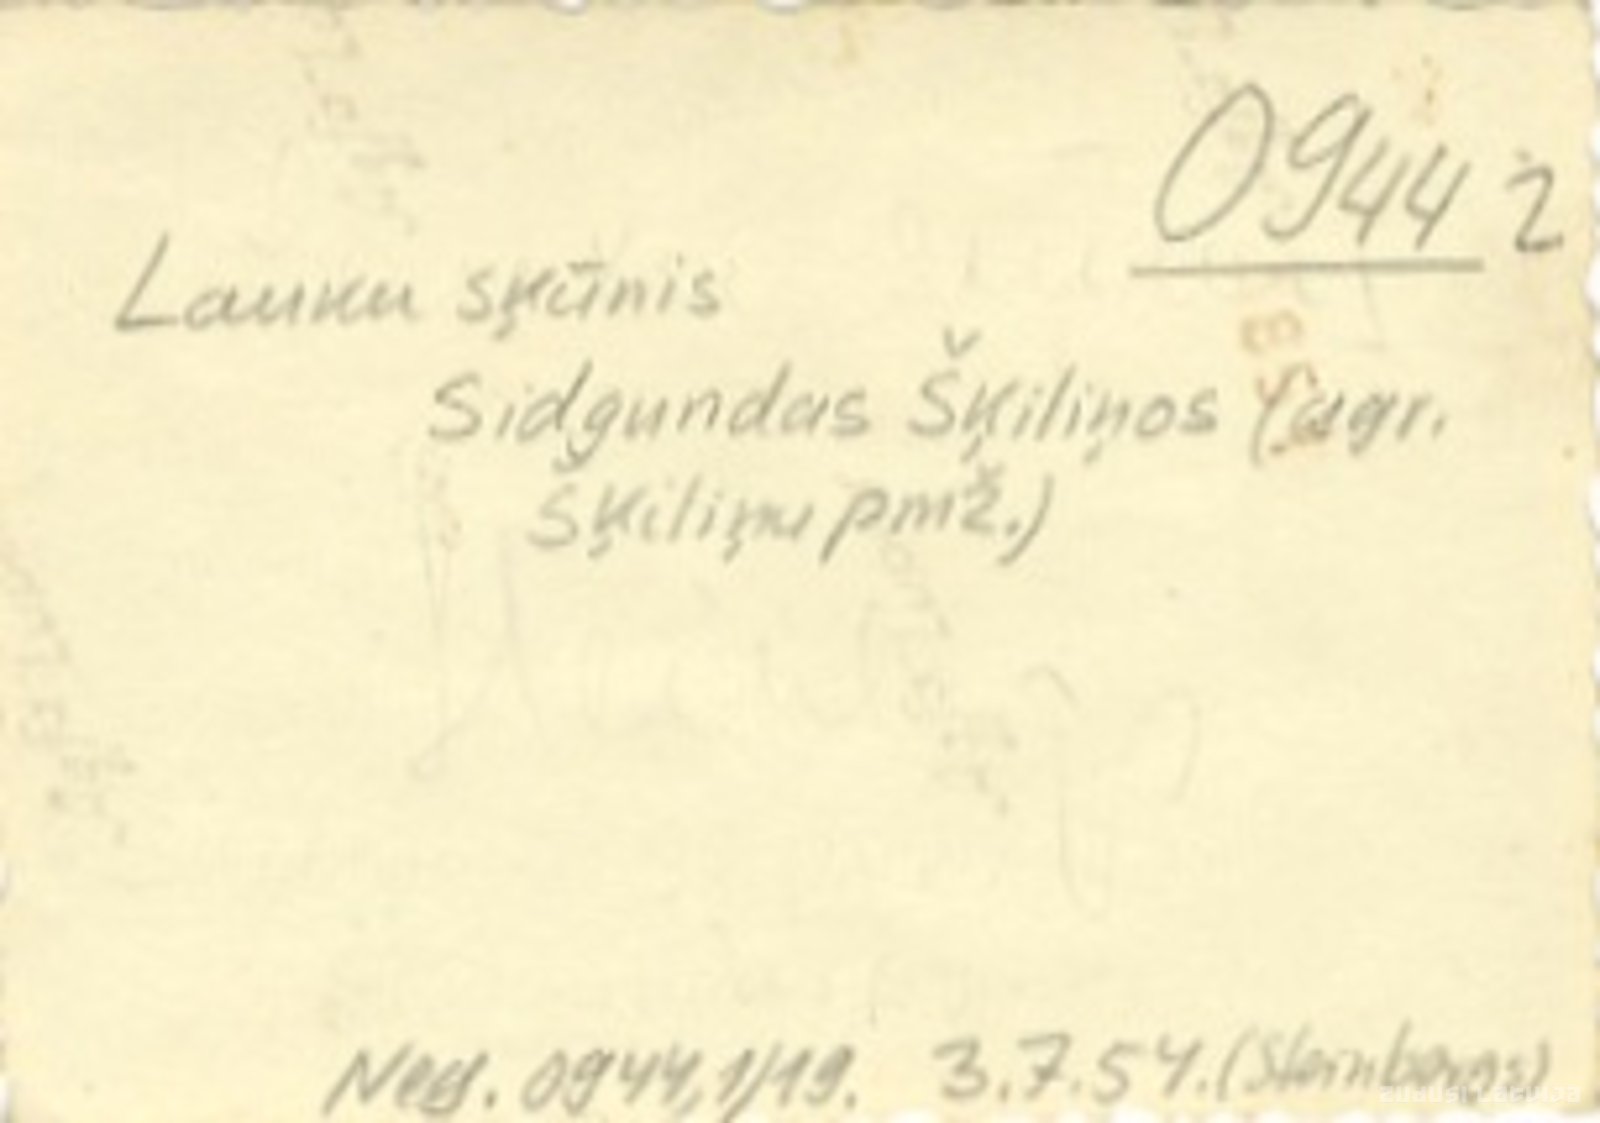 0944 2
Lauku šķūnis
Sidgundas Šķiliņos (agr.
Šķiliņu pmž.)
Neg. 0944,1/19. 3.7.54. (Šternbergs)
zudusi Latvija